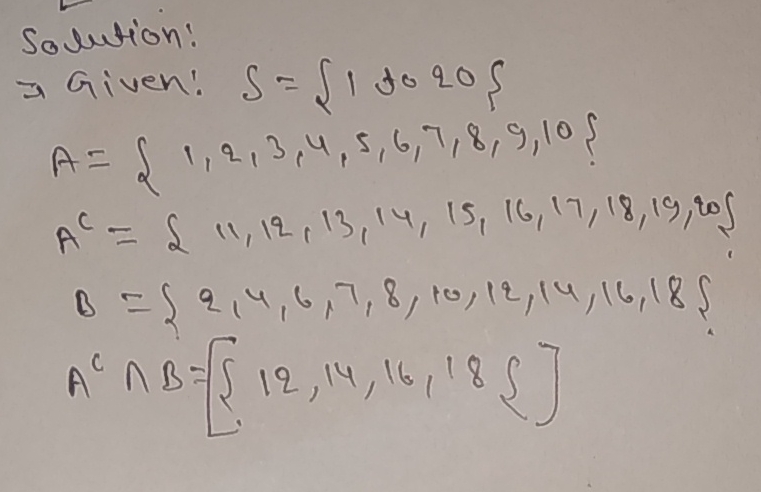 Solution:
→ Given: S = { 1 to 20 }
A = { 1, 2, 3, 4, 5, 6, 7, 8, 9, 10 }
Aᶜ = { 11, 12, 13, 14, 15, 16, 17, 18, 19, 20 }
B = { 2, 4, 6, 7, 8, 10, 12, 14, 16, 18 }
Aᶜ ∩ B = [{ 12, 14, 16, 18 }]